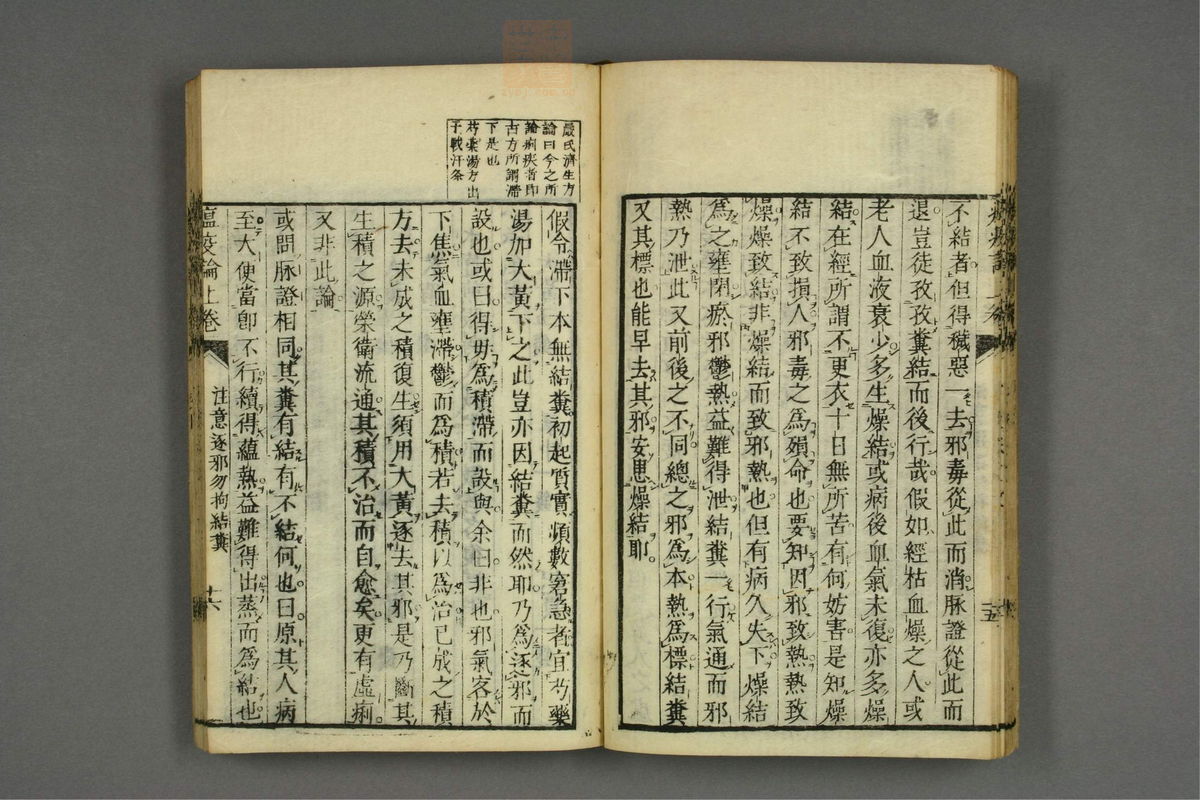 不結者但得穢惡一去邪毒從此而消脉證從此而
退豈徒孜孜糞結而後行哉假如經枯血燥之人或
老人血液衰少多生燥結或病後血氣未復亦多燥
結在經所謂不更衣十日無所苦有何妨害是知燥
結不致損人邪毒之為殞命也要知因邪致熱熱致
燥燥致結非燥結而致邪熱也但有病久失下燥結
為之壅閉瘀邪鬱熱益難得泄結糞一行氣通而邪
熱乃泄此又前後之不同總之邪為本熱為標結糞
又其標也能早去其邪安患燥結耶
嚴氏濟生方
論曰今之所
論痢疾者即
古方所謂滯
下是也
芍藥湯方出
于戰汗条
假令滯下本無結糞初起質實頻數窘急者宜芍藥
湯加大黃下之此豈亦因結糞而然耶乃為逐邪而
設也或曰得毋為積滯而設與余曰非也邪氣客於
下焦氣血壅滯鬱而為積若去積以為治已成之積
方去未成之積復生須用大黃逐去其邪是乃斷其
生積之源榮衛流通其積不治而自愈矣更有虛痢
又非此論
或問脉證相同其糞有結有不結何也曰原其人病
至大便當即不行續得蘊熱益難得出蒸而為結也
瘟疫論上卷
注意逐邪勿拘結糞
十六